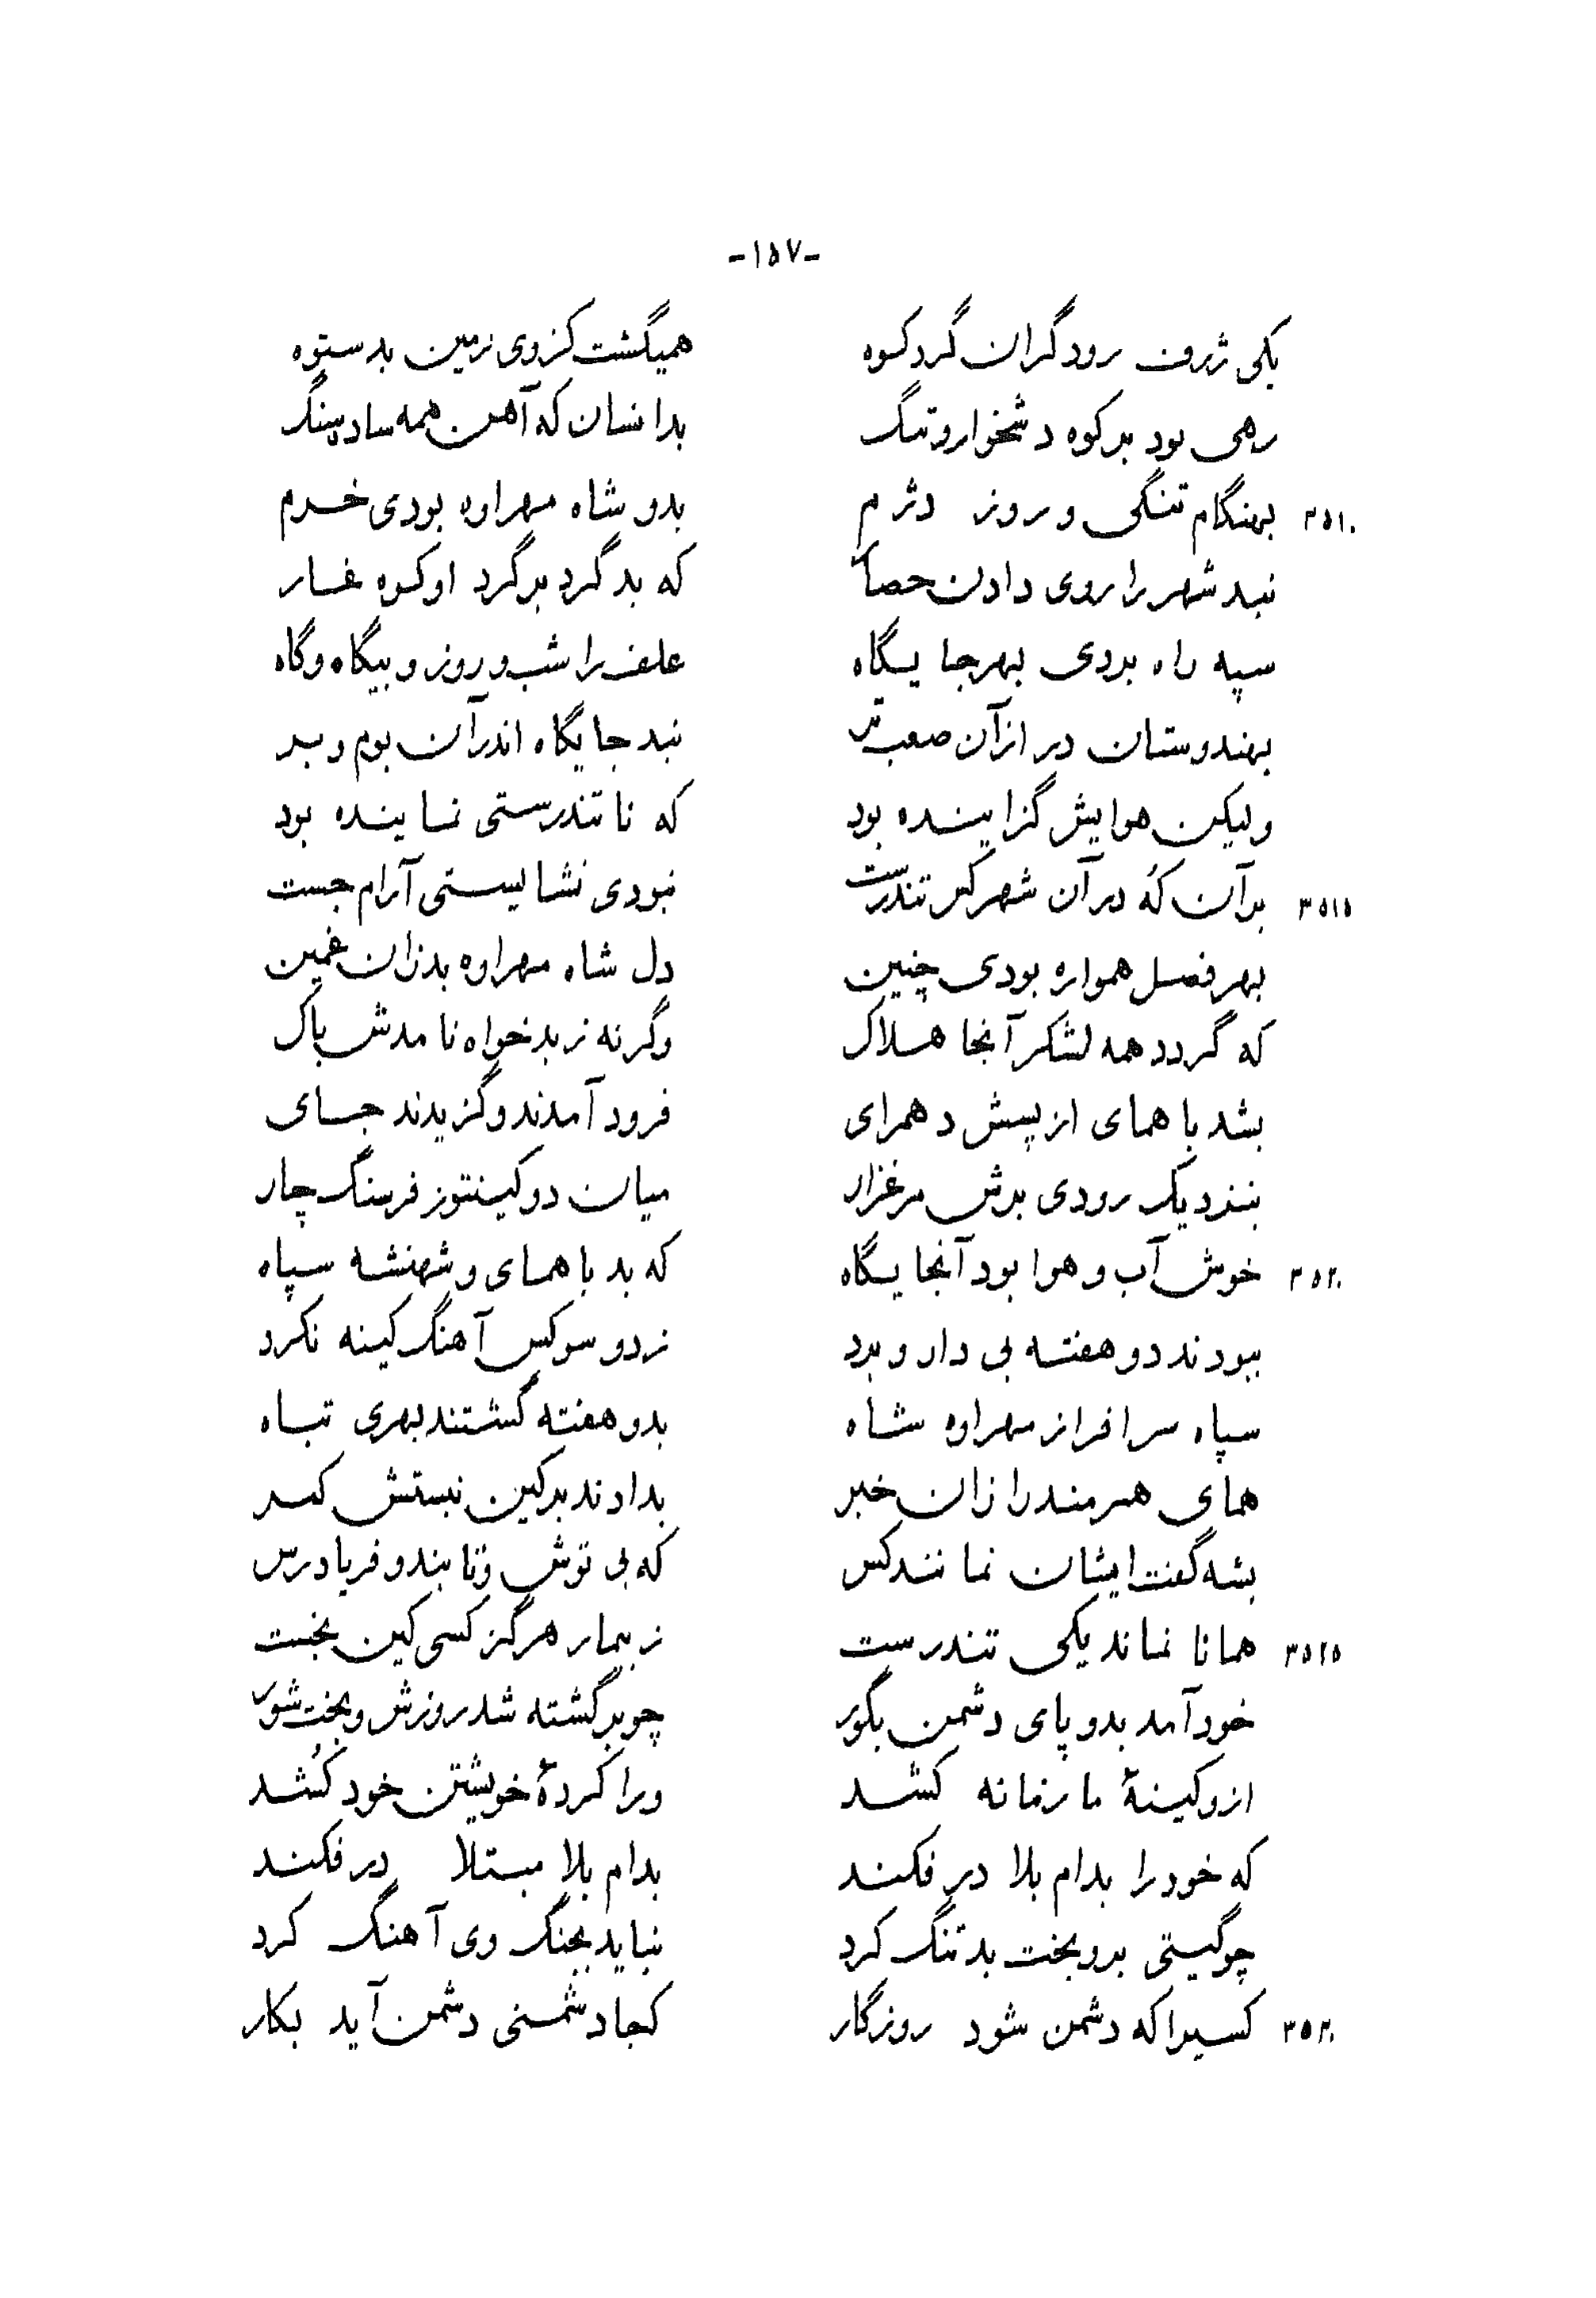 -۱۵۷-
یکی ژرف رود گران گرد کوه همیگشت کزوی زمین بد ستوه
رهی بود بر کوه دشخوار و تنگ بدانسان که آهن همه ساده سنگ
۳۵۱۰ بهنگام تنگی و روز دژم بدو شاه مهراوه بودی خرم
نبد شهر را روی دادن حصار که بد گرد بر گرد او کوه غار
سپه راه بردی بهر جایگاه علف را شب و روز و بیگاه و گاه
بهندوستان در از آن صعب تر نبد جایگاه اندر آن بوم و بر
ولیکن هوایش گزاینده بود که ناتندرستی نماینده بود
۳۵۱۵ بر آن که در آن شهر کس تندرست نبودی نشایستی آرام جست
بهر فصل همواره بودی چنین دل شاه مهراوه بد زان غمین
که گردد همه لشکر آنجا هلاک وگرنه ز بدخواه نامدش باک
بشد با همای از پسش دهمرای فرود آمدند و گزیدند جای
بنزدیک رودی برش مرغزار میان دو کینتوز فرسنگ چار
۳۵۲۰ خوش آب و هوا بود آنجایگاه که بد با همای و شهنشه سپاه
ببودند دو هفته بی دار و برد ز دو سو کس آهنگ کینه نکرد
سپاه سرافراز مهراوه شاه بدو هفته گشتند بهری تباه
همای هنرمند را زان خبر بدادند بر کین نبستش کمر
بشه گفت ایشان نمانند کس که بی توش و تابند و فریادرس
۳۵۲۵ همانا نماند یکی تندرست ز بیمار هرگز کسی کین نجست
خود آمد بدو پای دشمن بگور چو برگشته شد روزش و بخت شور
ازو کینهٔ ما زمانه کشد ورا کردهٔ خویشتن خود کُشد
که خود را بدام بلا در فکند بدام بلا مبتلا در فکند
چو گیتی برو بخت بد تنگ کرد نباید بجنگ وی آهنگ کرد
۳۵۳۰ کسیرا که دشمن شود روزگار کجا دشمنی دشمن آید بکار